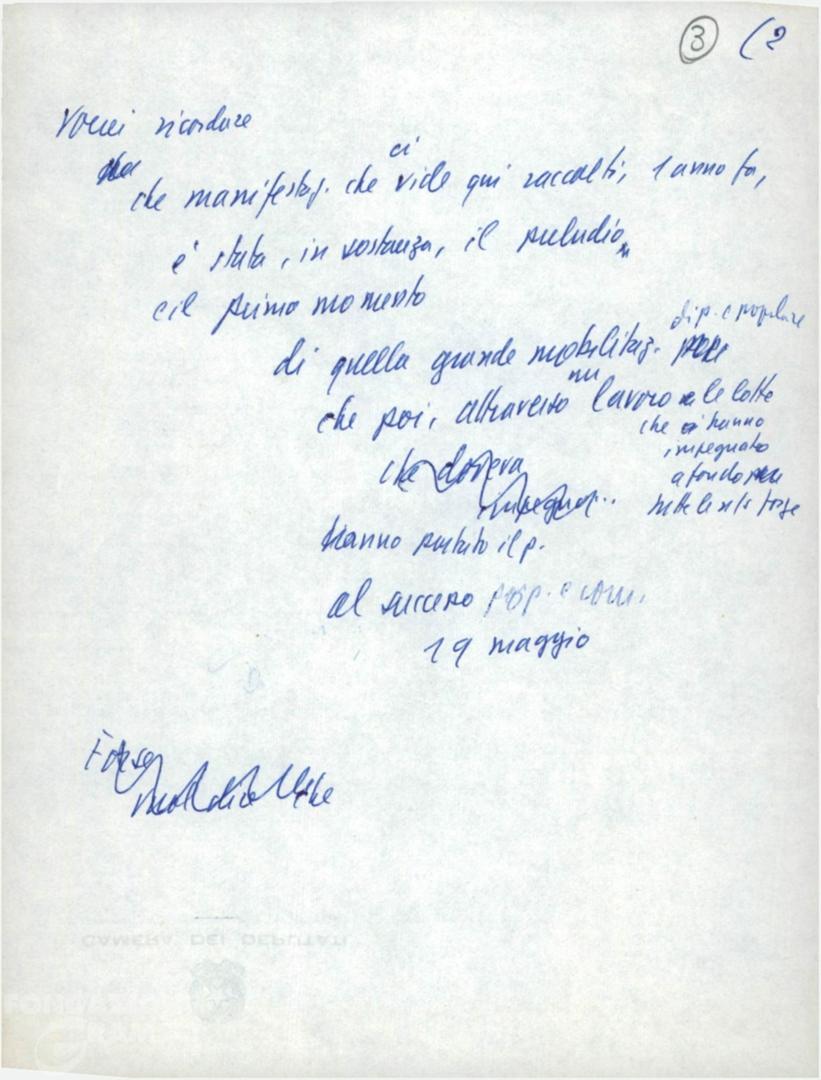 3 (2
Vorrei ricordare
che manifestaz. che ci vide qui raccolti, 1 anno fa,
è stata, in sostanza, il preludio
e il primo momento
di quella grande mobilitaz. di p. e popolare
che poi, attraverso un lavoro e le lotte
che ci hanno
impegnato
a fondo
tutte le ns forze
che doveva
hanno portato il p.
al successo pop. e com.
19 maggio
Forse
che
CAMERA DEI DEPUTATI
FONDAZIONE
GRAMSCI